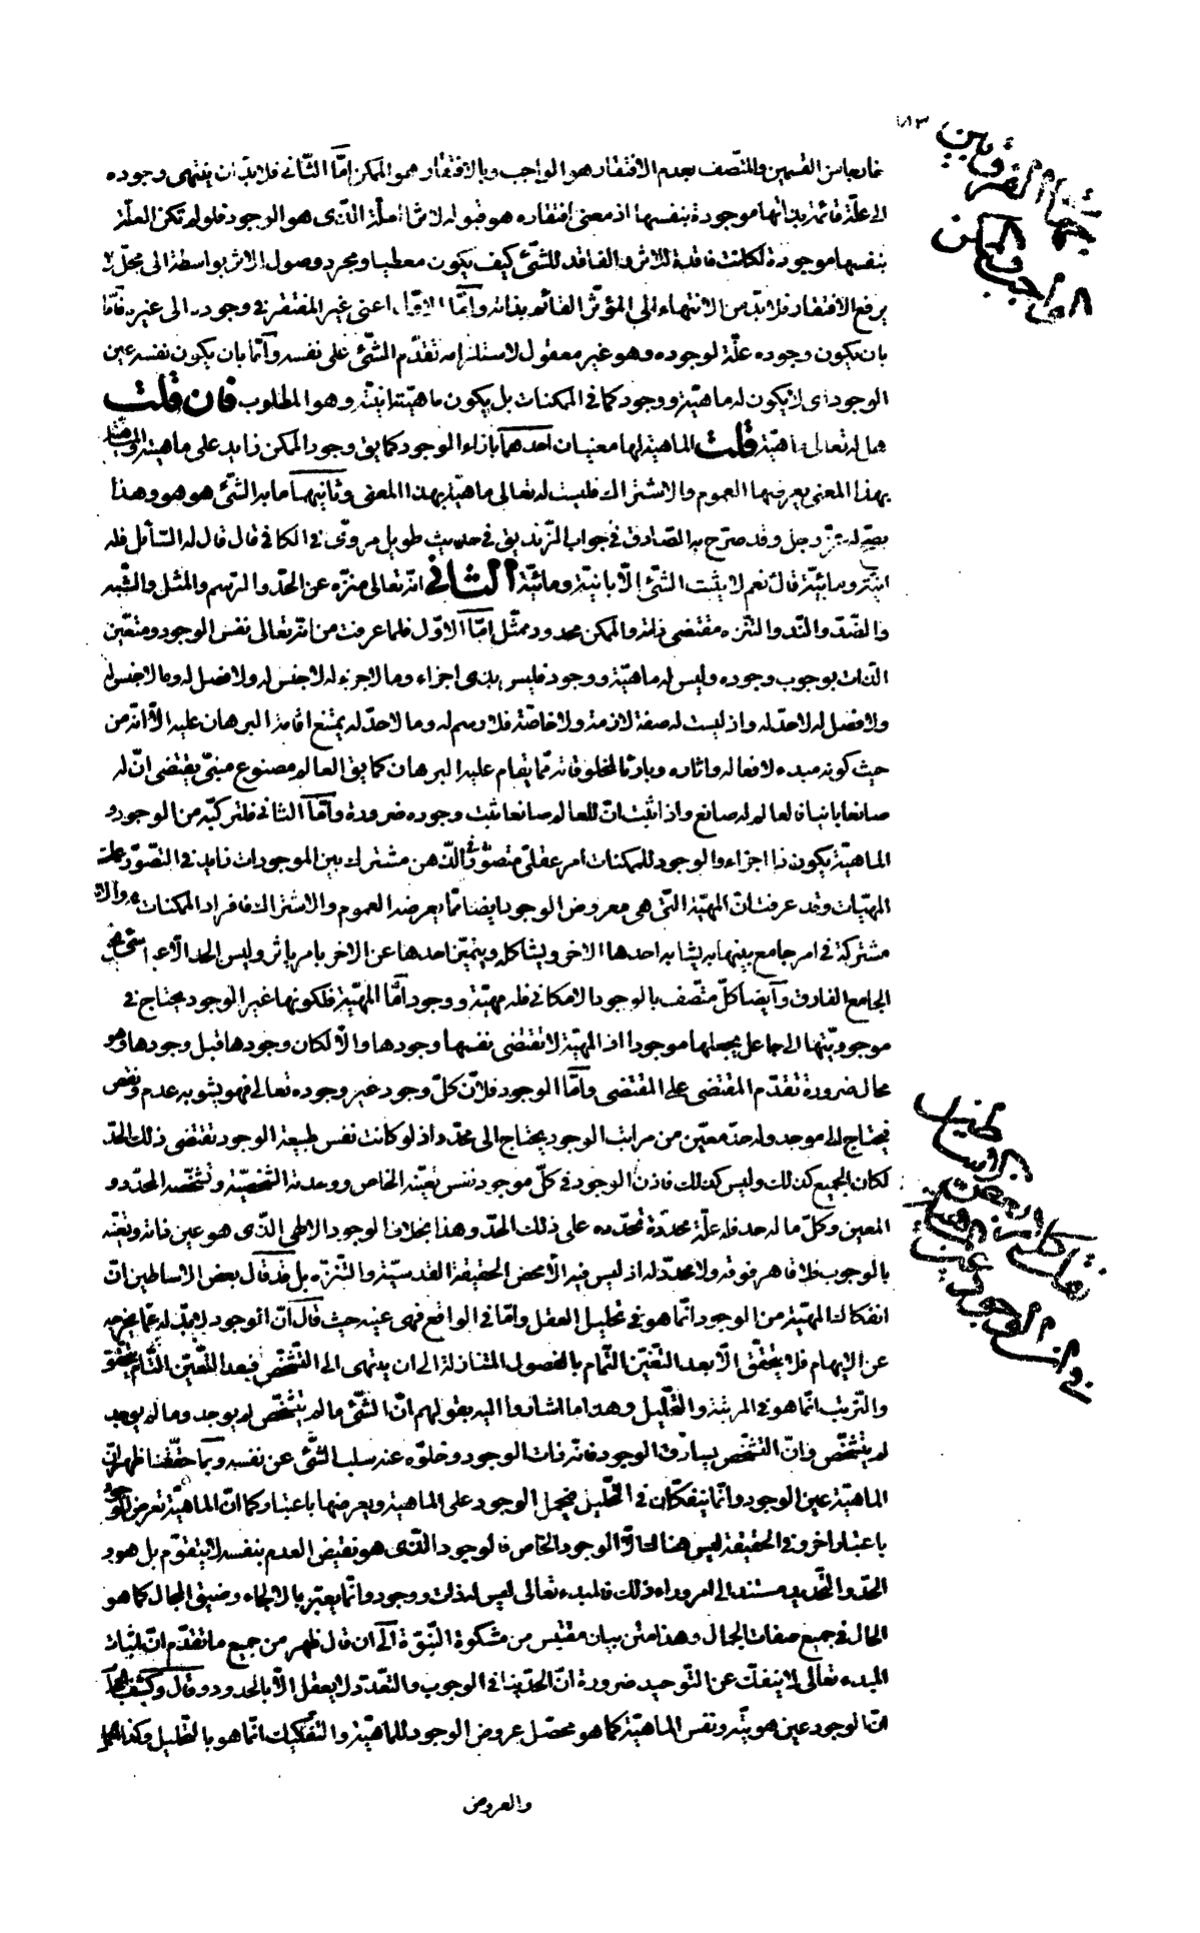 ١٨٣
جهات الفرق بين
الواجب والممكن
من القسمين والمتّصف بعدم الافتقار هو الواجب وبالافتقار هو الممكن امّا الثّانى فلا بدّ ان ينتهى وجوده
الى علّة قائمة بذاتها موجودة بنفسها اذ معنى افتقاره هو قبوله لاثر العلّة الّذى هو الوجود فلو لم تكن العلّة
بنفسها موجودة لكانت فاقدة للاثر والفاقد للشّئ كيف يكون معطيا ومجرد وصول الاثر بواسطة الى محلّ لا
يرفع الافتقار فلا بدّ من الانتهاء الى المؤثّر القائم بذاته وامّا الاوّل اعنى غير المفتقر فى وجوده الى غيره فامّا
بان يكون وجوده علّة لوجوده وهو غير معقول لاستلزامه تقدّم الشّئ على نفسه وامّا بان يكون نفسه عين
الوجود اى لا يكون له ماهيّة ووجود كما فى الممكنات بل يكون ماهيّته انيّته وهو المطلوب فان قلت
هل له تعالى ماهيّة قلت الماهيّة لها معنيان احدهما بازاء الوجود كما يق وجود الممكن زايد على ماهيته والماهيّة
بهذا المعنى يعرضها العموم والاشتراك فليست له تعالى ماهيّة بهذا المعنى وثانيهما ما به الشّئ هو هو وهذا
يصحّ له عزّ وجل وقد صرّح به الصّادق فى جواب الزّنديق فى حديث طويل مروىّ فى الكافى قال قال له السّائل فله
انيّة ومائيّة قال نعم لا يثبت الشّئ الّا بانيّة ومائيّة الثانى انّه تعالى منزّه عن الحدّ والرّسم والمثل والشّبه
والضّدّ والنّد والتنزّه مقتضى ذاته والممكن محدود ممثّل امّا الاوّل فلما عرفت من انّه تعالى نفس الوجود ومتعيّن
الذّات بوجوب وجوده وليس له ماهيّة ووجود فليس بذى اجزاء وما لا جزء له لا جنس له ولا فصل له وما لا جنس له
ولا فصل له لا حدّ له واذ ليست له صفة لازمة ولا خاصّة فلا رسم له وما لا حدّ له يمتنع اقامة البرهان عليه الّا انّه من
حيث كونه مبدء لافعاله واثاره وبارئا لمخلوقاته ممّا يقام عليه البرهان كما يق العالم مصنوع مبنىّ يقتضى انّ له
صانعا بانيا فالعالم له صانع واذ اثبت انّ للعالم صانعا ثبت وجوده ضرورة وامّا الثانى فلتركّبه من الوجود و
الماهيّة يكون ذا اجزاء والوجود للممكنات امر عقلىّ متصوّر فى الذّهن مشترك بين الموجودات زايد فى التصوّر على
المهيّات وقد عرفت انّ المهيّة الّتى هى معروض الوجود ايضا ممّا يعرضه العموم والاشتراك فافراد الممكنات
مشتركة فى امر جامع بينها به يشابه احدها الاخر ويشاكله ويتميّز احدها عن الاخر بامر يأثر وليس الحد الّا
الجامع الفارق وايضا كلّ متّصف بالوجود الامكانى فله مهيّة ووجود امّا المهيّة فلكونها غير الوجود يحتاج فى
موجوديّتها الى جاعل يجعلها موجودا اذ المهيّة لا تقتضى نفسها وجودها والّا لكان وجودها قبل وجودها وهو
محال ضرورة تقدّم المقتضى على المقتضى وامّا الوجود فلانّ كلّ وجود غير وجوده تعالى فهو يشوبه عدم ونقص
فيحتاج الى موجد وله حدّ معيّن من مراتب الوجود يحتاج الى محدّد اذ لو كانت نفس طبيعة الوجود تقتضى ذلك الحدّ
لكان الجميع كذلك وليس كذلك فاذن الوجود فى كلّ موجود نفس تعيّنه الخاص ووحدته الشّخصيّة وتشخّصه المحدود
المعين وكلّ ما له حد فله علّة محدّدة تحدّده على ذلك الحدّ وهذا بخلاف الوجود الاطى الذّى هو عين ذاته وتعيّنه
بالوجوب فلا قاهر فوقه ولا محدّد له اذ ليس فيه الّا محض الحقيقة القدسيّة والتّنزّه بل قد قال بعض الاساطين انّ
انفكاك المهيّة من الوجود انّما هو فى تحليل العقل وامّا فى الواقع فهى عينه حيث قال انّ الوجود لا بدّ له عمّا يخرجه
عن الابهام فلا يتحقّق الّا بعد التّعيّن التّمام بالفصول المتنازلة الى ان ينتهى الى التّشخّص فبعد التّعيّن التّام يتحقّق
والتّرتيب انّما هو فى المرتبة والتّحليل وهذا ما اشاروا اليه بقولهم انّ الشّئ ما لم يتشخّص لم يوجد وما لم يوجد
لم يتشخّص فانّ التشخّص يساوق الوجود فانّ فات الوجود وخلوّه عنه سلب الشّئ عن نفسه وبما حقّقنا ظهر انّ
الماهيّة عين الوجود وانّما ينفكّان فى التّحليل فيحمل الوجود على الماهية ويعرضها باعتبار كما انّ الماهيّة تعرض الوجود
باعتبار اخر وفى الحقيقة ليس هنا الّا الوجود الخاص فالوجود الّذى هو نقيض العدم بنفسه لا يتقوّم بل هو و
الحدّ والتّحديد مستند الى امر وراء ذلك فالمبدء تعالى ليس له ذات ووجود وانّما يعبّر بالالجاء وضيق المجال كما هو
الحال فى جميع صفات الجمال وهذا متن بيان مقتبس من مشكوة النّبوّة الى ان قال ظهر من جميع ما تقدّم انّ اثبات
المبدء تعالى لا ينفكّ عن التّوحيد ضرورة انّ الحدّ ينافى الوجوب والتعدّد لا يعقل الّا بالحدود وقال
انّ الوجود عين هويّته ونفس الماهيّة كما هو محصّل عروض الوجود للماهيّة والتفكيك انّما هو بالتحليل وكذا الحمل
والعروض